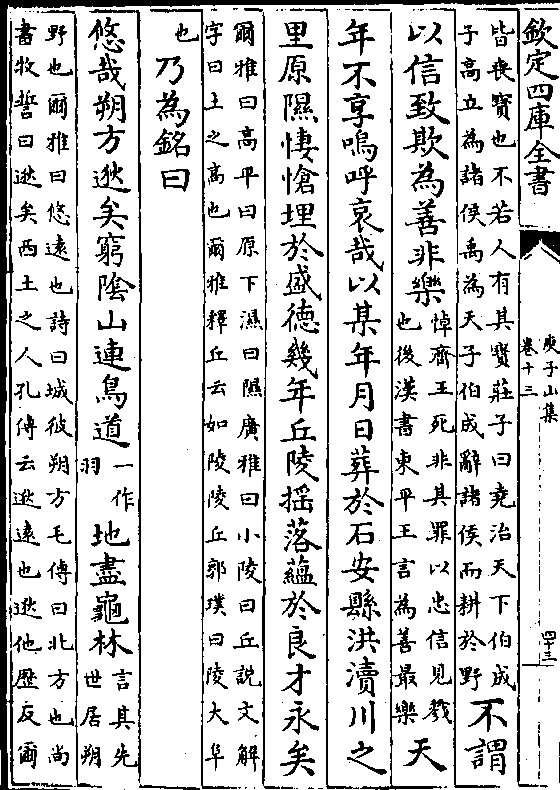 欽定四庫全書
庾子山集
卷十三
四十三
皆喪寳也不若人有其寳莊子曰堯治天下伯成
子高立為諸侯禹為天子伯成辭諸侯而耕於野
不謂
以信致欺為善非樂
悼齊王死非其罪以忠信見戮
也後漢書東平王言為善最樂
天
年不享嗚呼哀哉以某年月日葬於石安縣洪瀆川之
里原隰悽愴埋於盛德幾年丘陵揺落藴於良才永矣
爾雅曰高平曰原下濕曰隰廣雅曰小陵曰丘説文解
字曰土之高也爾雅釋丘云如陵陵丘郭璞曰陵大阜
也
乃為銘曰
悠哉朔方逖矣窮陰山連鳥道
一作
羽
地盡龜林
言其先
世居朔
野也爾雅曰悠遠也詩曰城彼朔方毛傳曰北方也尚
書牧誓曰逖矣西土之人孔傳云逖遠也逖他歴反爾